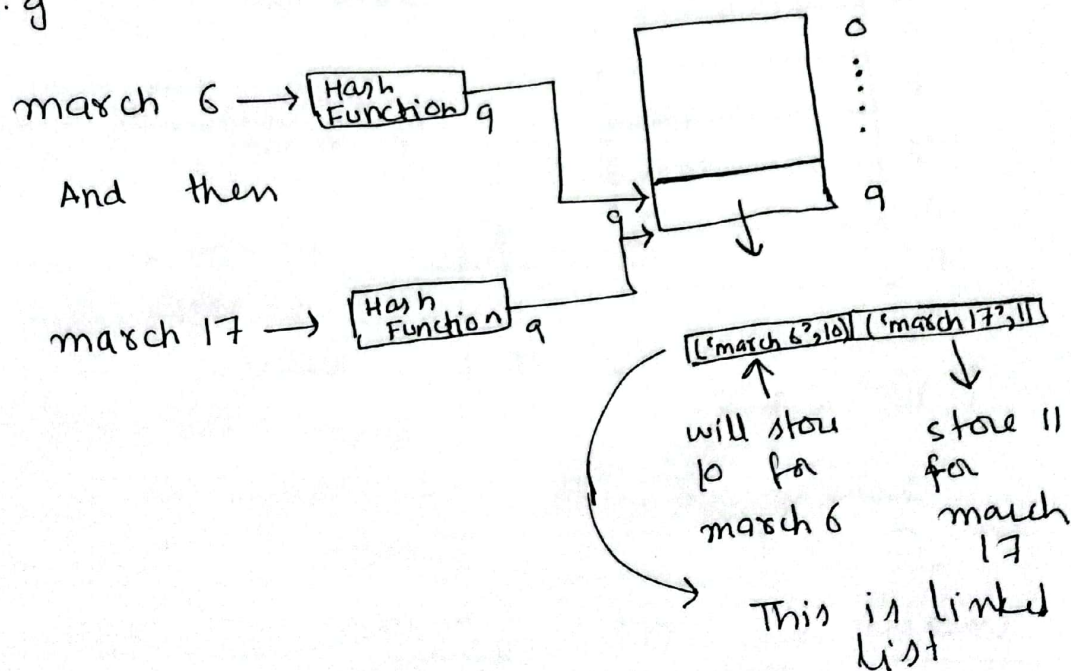 . g
march 6 → Hash Function 9
0
9
And then
9
march 17 → Hash Function 9
('march 6', 10) ('march 17', 11
will store 10 for march 6
store 11 for march 17
This is linked list